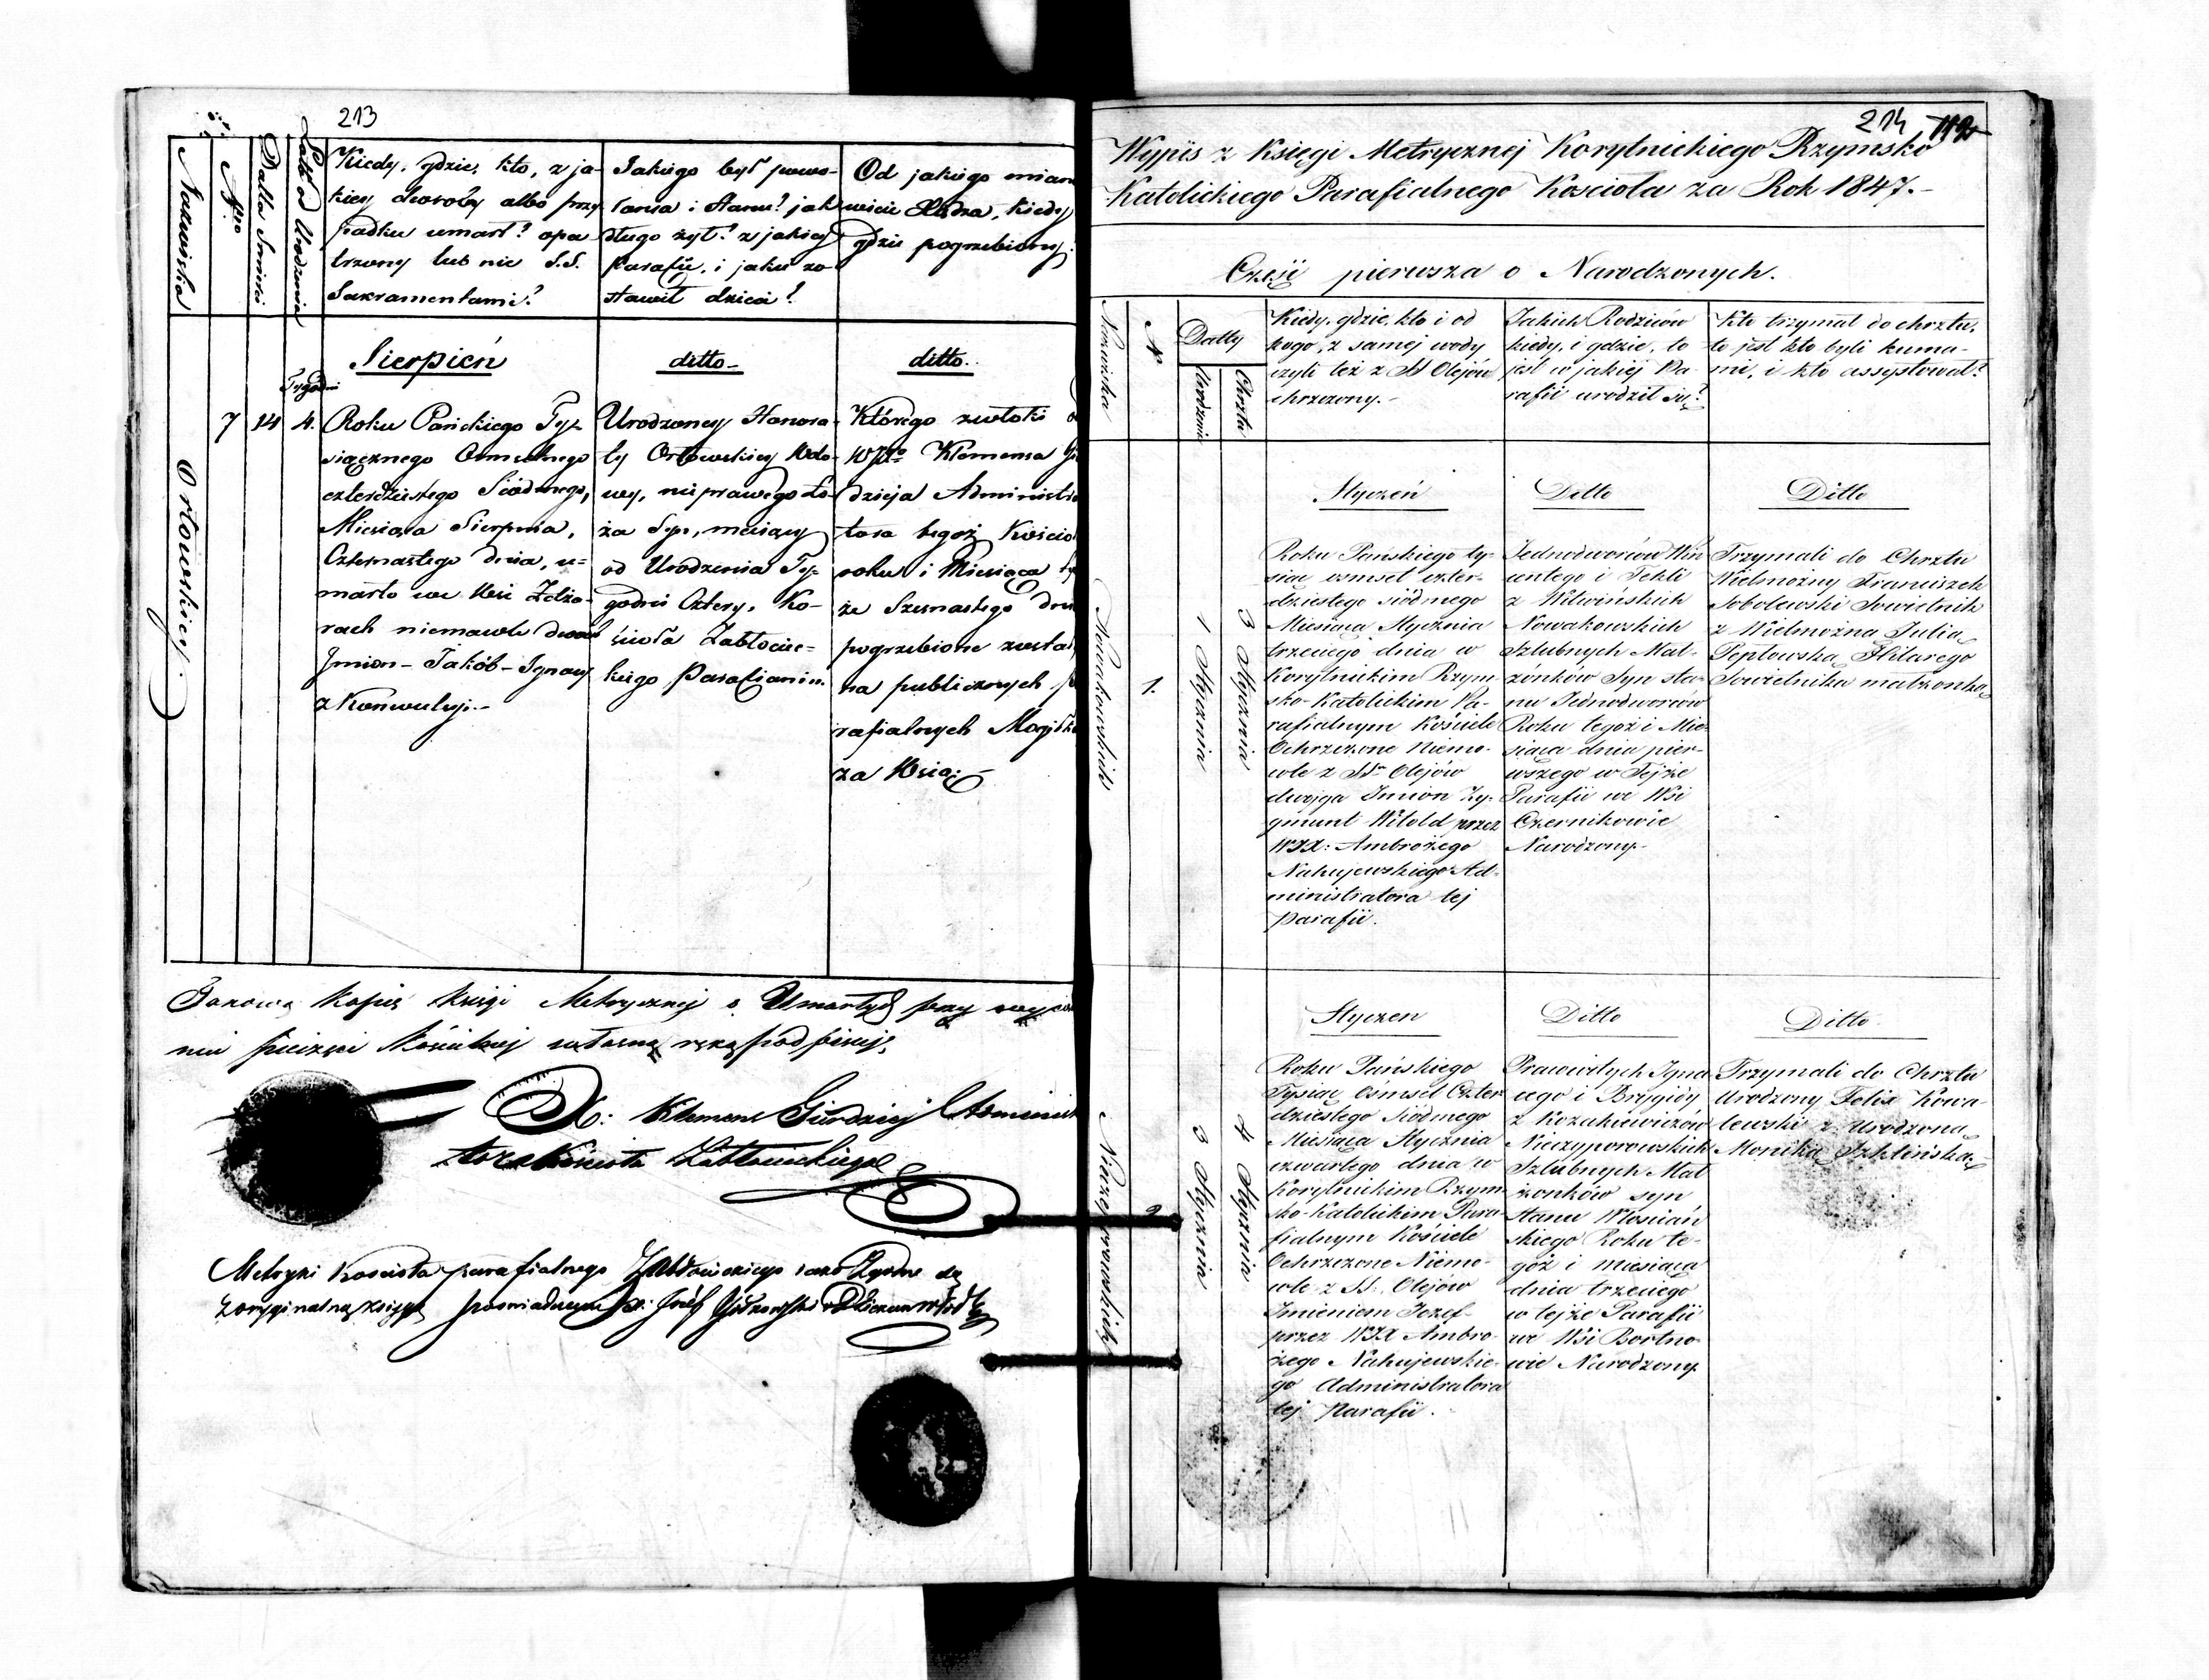 213
Nazwiska
Nro
Datta Śmierci
Latta od Urodzenia
Kiedy, gdzie, kto, z ja-
kiey choroby albo przy-
padku umarł? opa-
trzony lub nie S.S.
Sakramentami?
Jakiego był powo-
łania i stanu? jak
długo żył? z jakiej
parafii, i jakie zo-
stawił dzieci?
Od jakiego miano
wicie Xiędza, kiedy
gdzie pogrzebiony?
Sierpień
ditto
ditto.
Orłowskiej.
7
14
Tygodni
4.
Roku Pańskiego Ty-
siącznego Ośmsetnego
czterdziestego Siódmego,
Miesiąca Sierpnia,
Czternastego dnia, u-
marło we Wsi
niemowle dwoch
Jmion - Jakób - Ignacy
z Konwulsji.-
Urodzoney Honora-
ty Orłowskiey Wdo-
wy, nieprawego ło-
ża Syn, maiący
od Urodzenia Ty-
godni Cztery, Ko-
ścioła Zabłociec-
kiego Parafianin.
Którego zwłoki
Klemensa
Administra
tora tegoż Kościo
roku i Miesiąca
że Szesnastego dnia
pogrzebione zostały
na publicznych
rafialnych Mogiłk
za Wsią.
Takową kopię księgi Metrycznej o Umarłych przy
niu pieczęci Kościelnej własną ręką podpisuję
X: Klemens Gierdziej Administ
tora Kościoła Zabłocieckiego
Metryki Kościoła parafialnego Zabłocieckiego jako Zgodne są
z oryginalną księgą poswiadczam X: Józef
214
Wypis z Księgi Metrycznej Korytnickiego Rzymsko
Katolickiego Parafialnego Kościoła za Rok 1847.-
Część pierwsza o Narodzonych.
Nazwiska
N.
Datty
Urodzenia
Chrztu
Kiedy, gdzie, kto i od
kogo, z samej wody
czyli też z SS Olejów
chrzczony.-
Jakich Rodziców
kiedy, i gdzie, to
jest w jakiej Pa-
rafii urodził się?
Kto trzymał do chrztu,
to jest kto byli kuma-
mi, i kto assystował?
Styczeń
Ditto
Ditto
Nowakowskich
1.
1 Stycznia
3 Stycznia
Roku Pańskiego ty-
siąc osmset czter-
dziestego siódmego
Miesiąca Stycznia
trzeciego dnia w
Korytnickim Rzym
sko-Katolickim Pa-
rafialnym Kościele
Ochrzczone Niemo-
wle z SS. Olejów
dwojga Imion Zy-
gmunt Witold przez
WJX: Ambrożego
Nahujewskiego Ad-
ministratora tej
parafii.
Jednodworców Win
centego i Tekli
z Wilwińskich
Nowakowskich
Szlubnych Mał-
żónków Syn sta-
nu Jednodworców
Roku tegoż i Mie-
siąca dnia pier-
wszego w Tejże
Parafii we Wsi
Czernikowie
Narodzony.
Trzymali do Chrztu
Wielmożny Franciszek
Sobolewski Sowietnik
z Wielmożną Julią
Peptowską Hilarego
Sowietnika małżonką
Styczen
Ditto
Ditto.
Nieczyporowskich
2.
3 Stycznia
4 Stycznia
Roku Pańskiego
Tysiąc Ośmset Czter
dziestego Siódmego
Miesiąca Stycznia
czwartego dnia w
Korytnickim Rzym-
sko-Katolickim Para-
fialnym Kościele
Ochrzczone Niemo-
wle z SS. Olejów
Imieniem Jozef
przez WJX Ambro-
żego Nahujewskie-
go Administratora
tej Parafii.
Pracowitych Igna
cego i Brygidy
z Kozakiewiczów
Nieczyporowskich
Szlubnych Mał
żonków syn
Stanu Włosciań
skiego Roku te-
goż i miesiąca
dnia trzeciego
w tejże Parafii
we Wsi Bortno-
wie Narodzony.
Trzymali do Chrztu
Urodzony Felix Kowa-
lewski z Urodzoną
Moniką Szklińską.